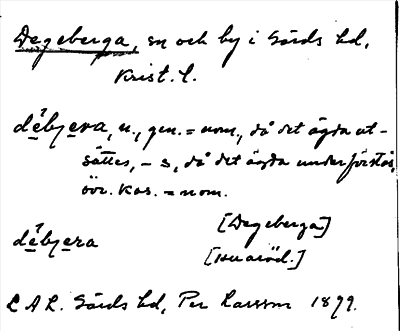 Degeberga, sn och by i Gärds hd,
Krist. l.
dèbjera, n., gen. = nom., då det ägda ut-
sättes, – s, då det ägda underförstås,
övr. kas. = nom.
[Degeberga]
dèbjera
[Huaröd.]
L A L. Gärds hd, Per Larsson 1899.